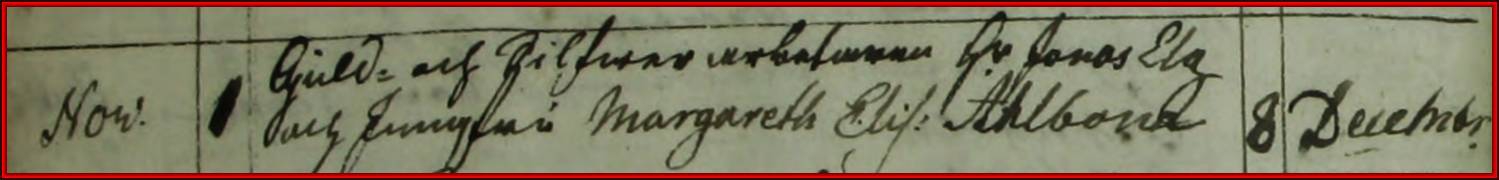 Guld- och Silfwer arbetaren Hr Jonas Elg
Nov. 1 och Jungfru Margareth Elis: Ahlbom 8 Decembr.